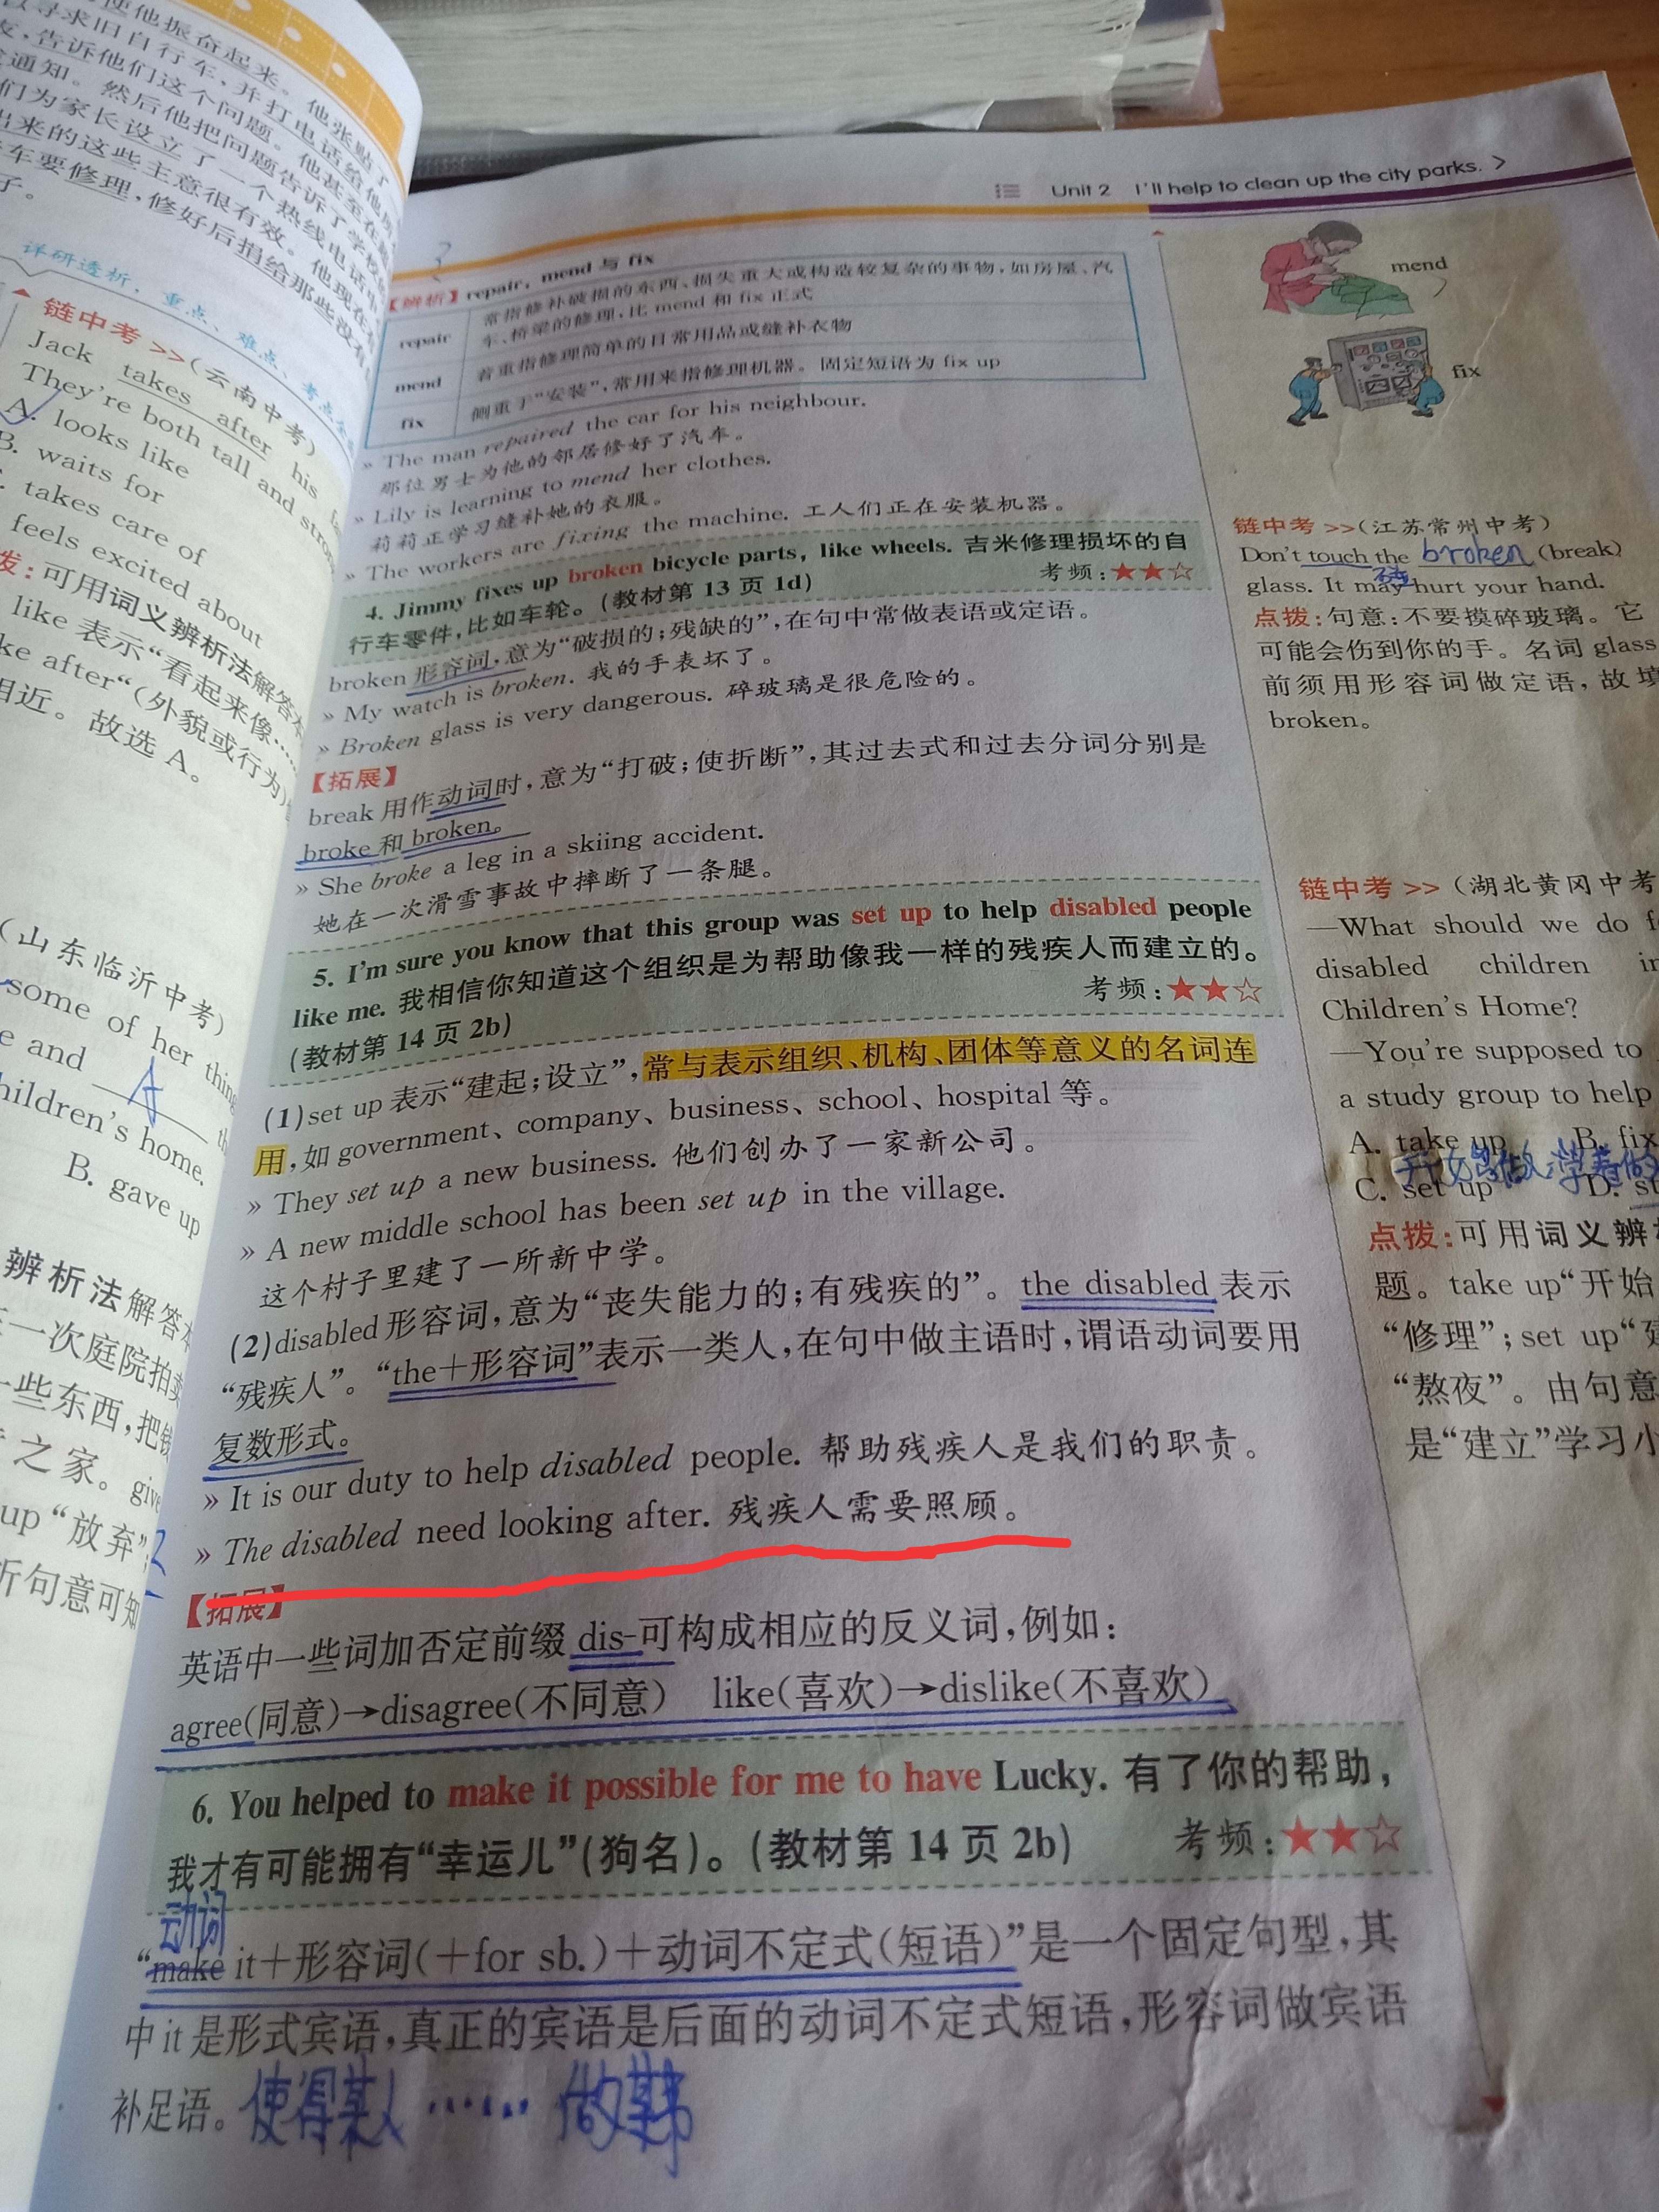 使他振奋起来。他张贴了
寻求旧自行车,并打电话给他所
友,告诉他们这个问题。他甚至在
通知。然后他把问题告诉了学校
们为家长设立了一个热线电话
出来的这些主意很有效。他现在有
车要修理,修好后捐给那些没有
子。
详研透析,重点、难点、考点
链中考 >>(云南中考)
Jack takes after his
They're both tall and strong
A. looks like
B. waits for
takes care of
feels excited about
发:可用词义辨析法解答
like 表示“看起来像…
ke after“(外貌或行为)
相近。故选 A。
(山东临沂中考)
some of her thing
e and A th
hildren's home.
B. gave up
辨析法解答本
一次庭院拍卖
一些东西,把钱
之家。give
up “放弃”;
析句意可知
Unit 2 I'll help to clean up the city parks. >
【辨析】repair, mend 与 fix
repair 常指修补破损的东西、损失重大或构造较复杂的事物,如房屋、汽
车、桥梁的修理,比 mend 和 fix 正式
mend 着重指修理简单的日常用品或缝补衣物
fix 侧重于“安装”,常用来指修理机器。固定短语为 fix up
» The man repaired the car for his neighbour.
那位男士为他的邻居修好了汽车。
» Lily is learning to mend her clothes.
莉莉正学习缝补她的衣服。
» The workers are fixing the machine. 工人们正在安装机器。
4. Jimmy fixes up broken bicycle parts, like wheels. 吉米修理损坏的自
行车零件,比如车轮。(教材第 13 页 1d) 考频:★★☆
broken 形容词,意为“破损的;残缺的”,在句中常做表语或定语。
» My watch is broken. 我的手表坏了。
» Broken glass is very dangerous. 碎玻璃是很危险的。
【拓展】
break 用作动词时,意为“打破;使折断”,其过去式和过去分词分别是
broke 和 broken。
» She broke a leg in a skiing accident.
她在一次滑雪事故中摔断了一条腿。
5. I'm sure you know that this group was set up to help disabled people
like me. 我相信你知道这个组织是为帮助像我一样的残疾人而建立的。
(教材第 14 页 2b) 考频:★★☆
(1)set up 表示“建起;设立”,常与表示组织、机构、团体等意义的名词连
用,如 government、company、business、school、hospital 等。
» They set up a new business. 他们创办了一家新公司。
» A new middle school has been set up in the village.
这个村子里建了一所新中学。
(2)disabled 形容词,意为“丧失能力的;有残疾的”。the disabled 表示
“残疾人”。“the+形容词”表示一类人,在句中做主语时,谓语动词要用
复数形式。
» It is our duty to help disabled people. 帮助残疾人是我们的职责。
» The disabled need looking after. 残疾人需要照顾。
【拓展】
英语中一些词加否定前缀 dis-可构成相应的反义词,例如:
agree(同意)→disagree(不同意) like(喜欢)→dislike(不喜欢)
6. You helped to make it possible for me to have Lucky. 有了你的帮助,
我才有可能拥有“幸运儿”(狗名)。(教材第 14 页 2b) 考频:★★☆
动词
“make it+形容词(+for sb.)+动词不定式(短语)”是一个固定句型,其
中 it 是形式宾语,真正的宾语是后面的动词不定式短语,形容词做宾语
补足语。使得某人……做某事
mend
fix
链中考 >>(江苏常州中考)
Don't touch the broken (break)
glass. It may hurt your hand.
点拨:句意:不要摸碎玻璃。它
可能会伤到你的手。名词 glass
前须用形容词做定语,故填
broken。
链中考 >> (湖北黄冈中考
—What should we do
disabled children in
Children's Home?
—You're supposed to
a study group to help
A. take up B. fix
C. set up D. st
点拨:可用词义辨
题。take up“开始
“修理”;set up“建
“熬夜”。由句意
是“建立”学习小